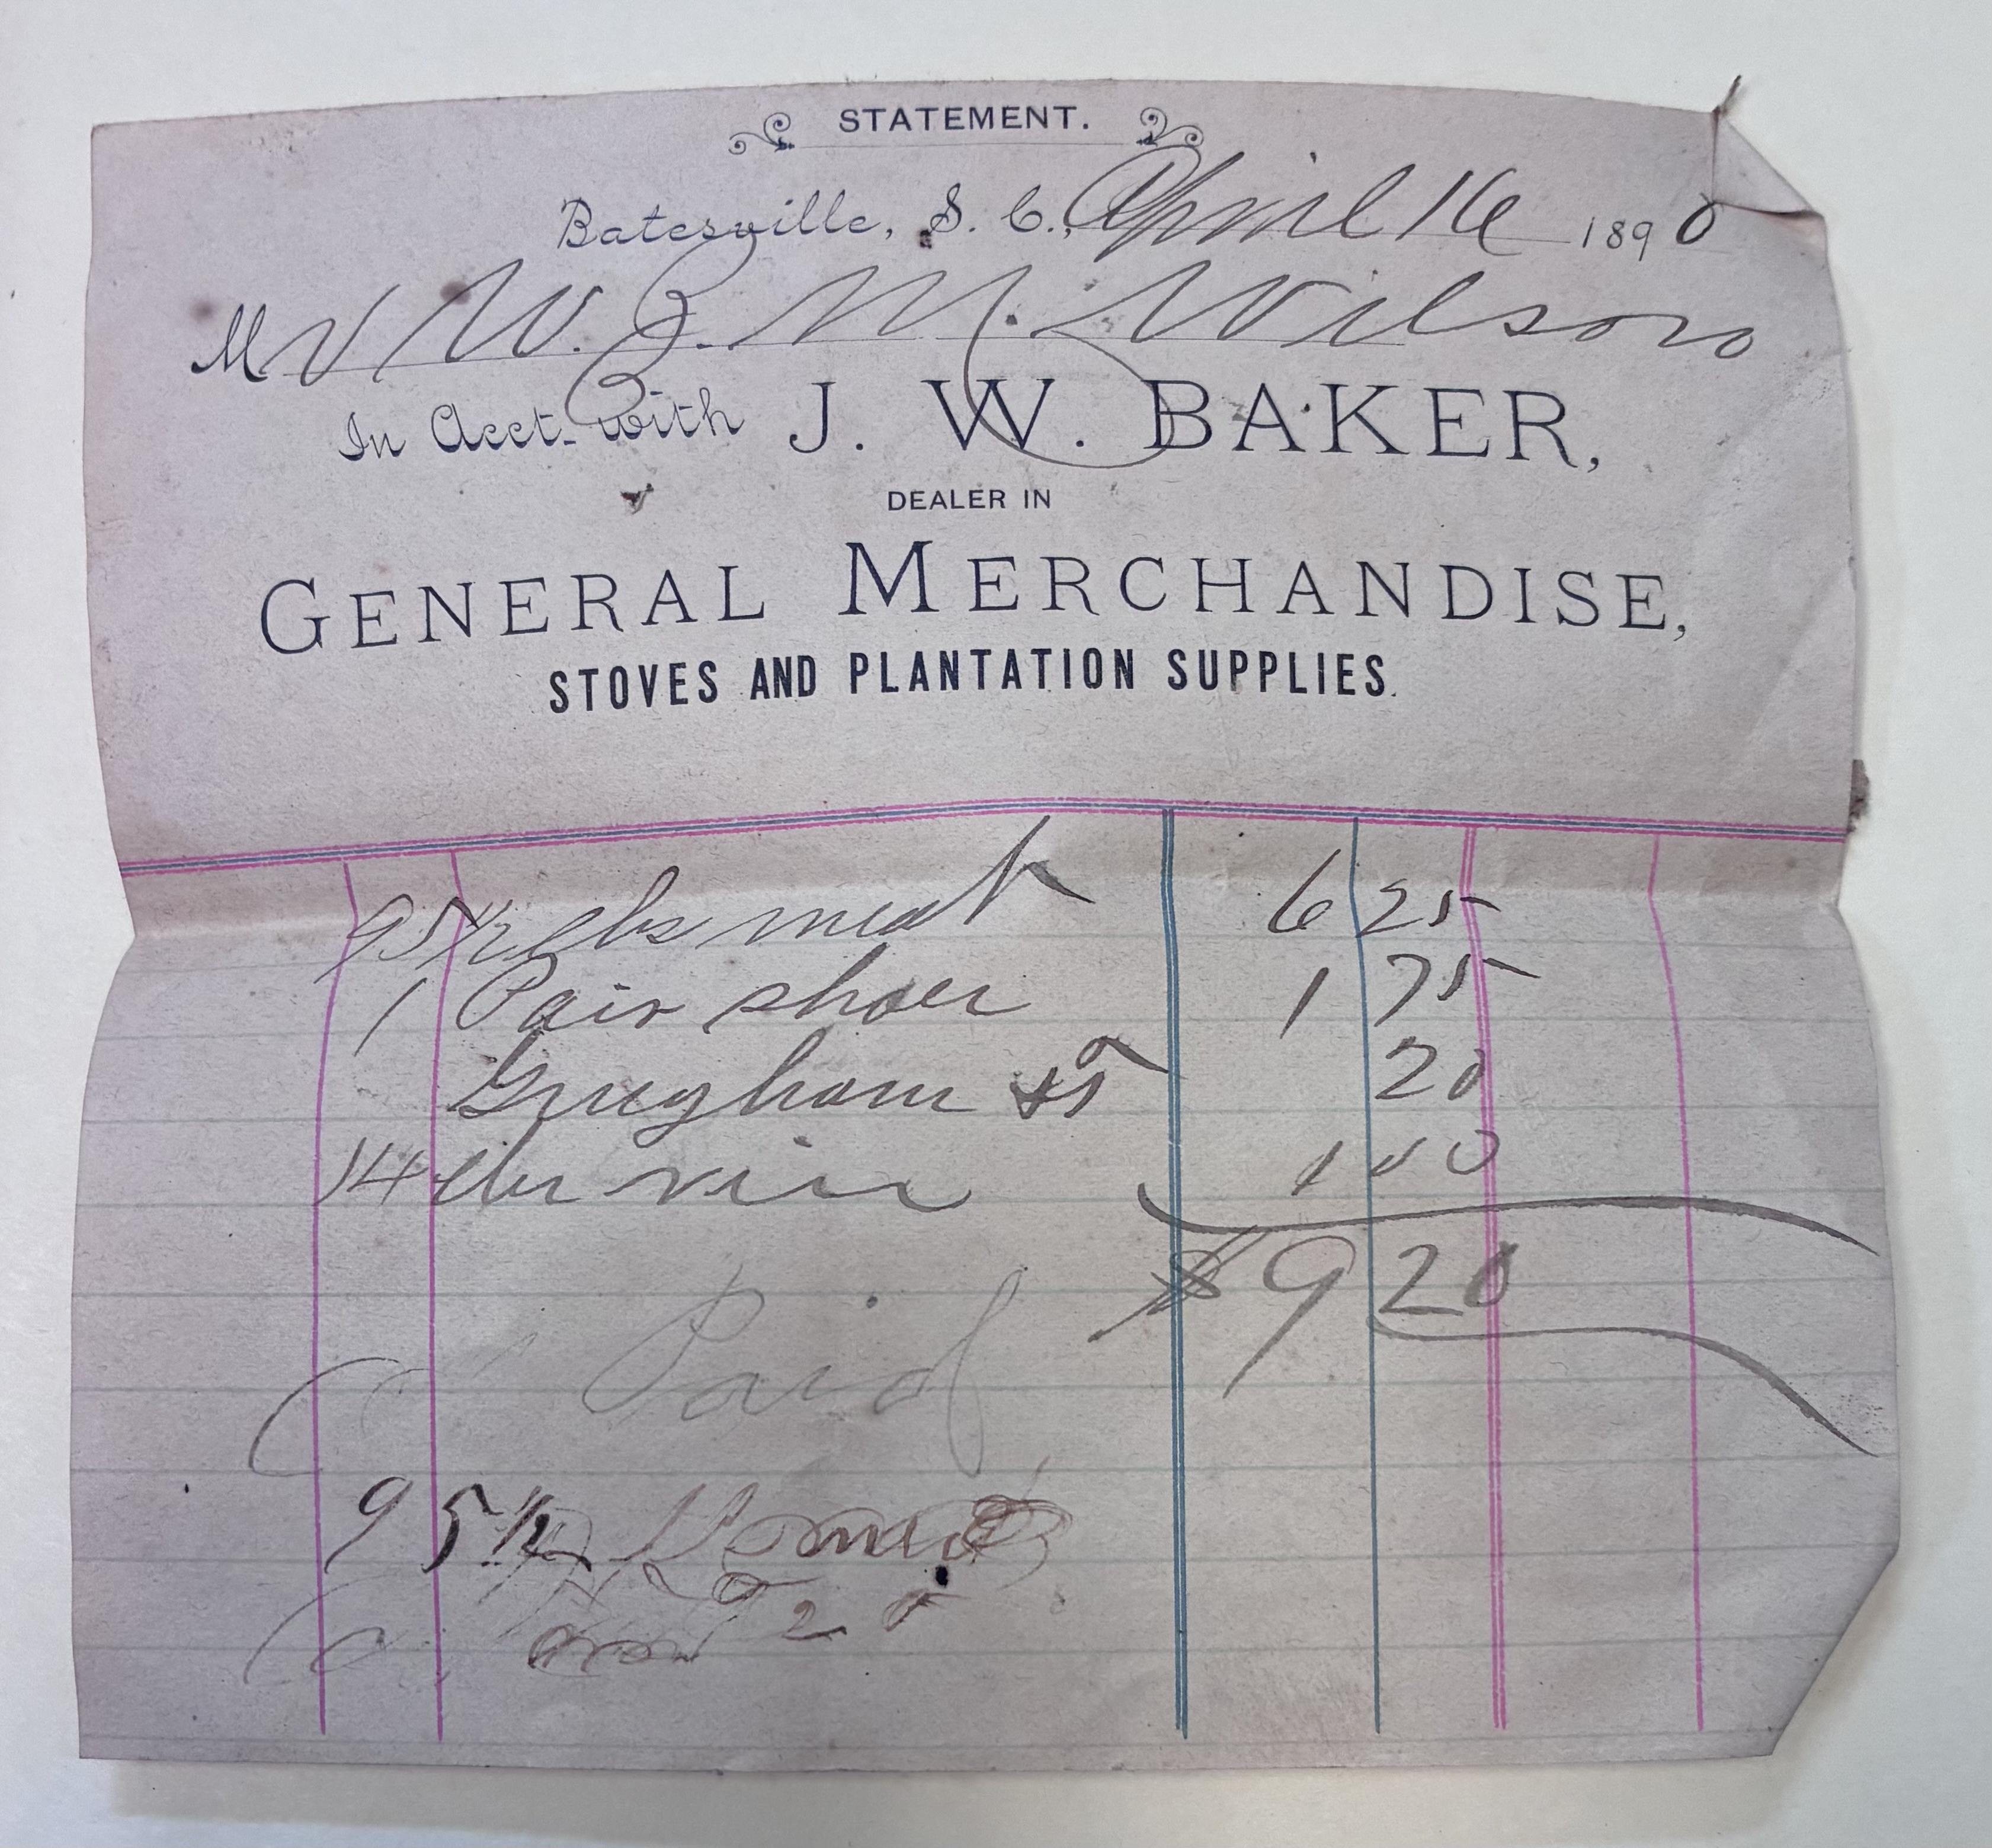 STATEMENT.
Batesville, S. C., April 16 1890
Mr W. J. M. Wilson
In Acct. with J. W. BAKER,
DEALER IN
GENERAL MERCHANDISE,
STOVES AND PLANTATION SUPPLIES.
95 1/2 lbs meat 6 25
1 Pair shoes 1 75
Gingham 20
14 lbs rice 1 00
$ 9 20
Paid
95 1/2
9 20